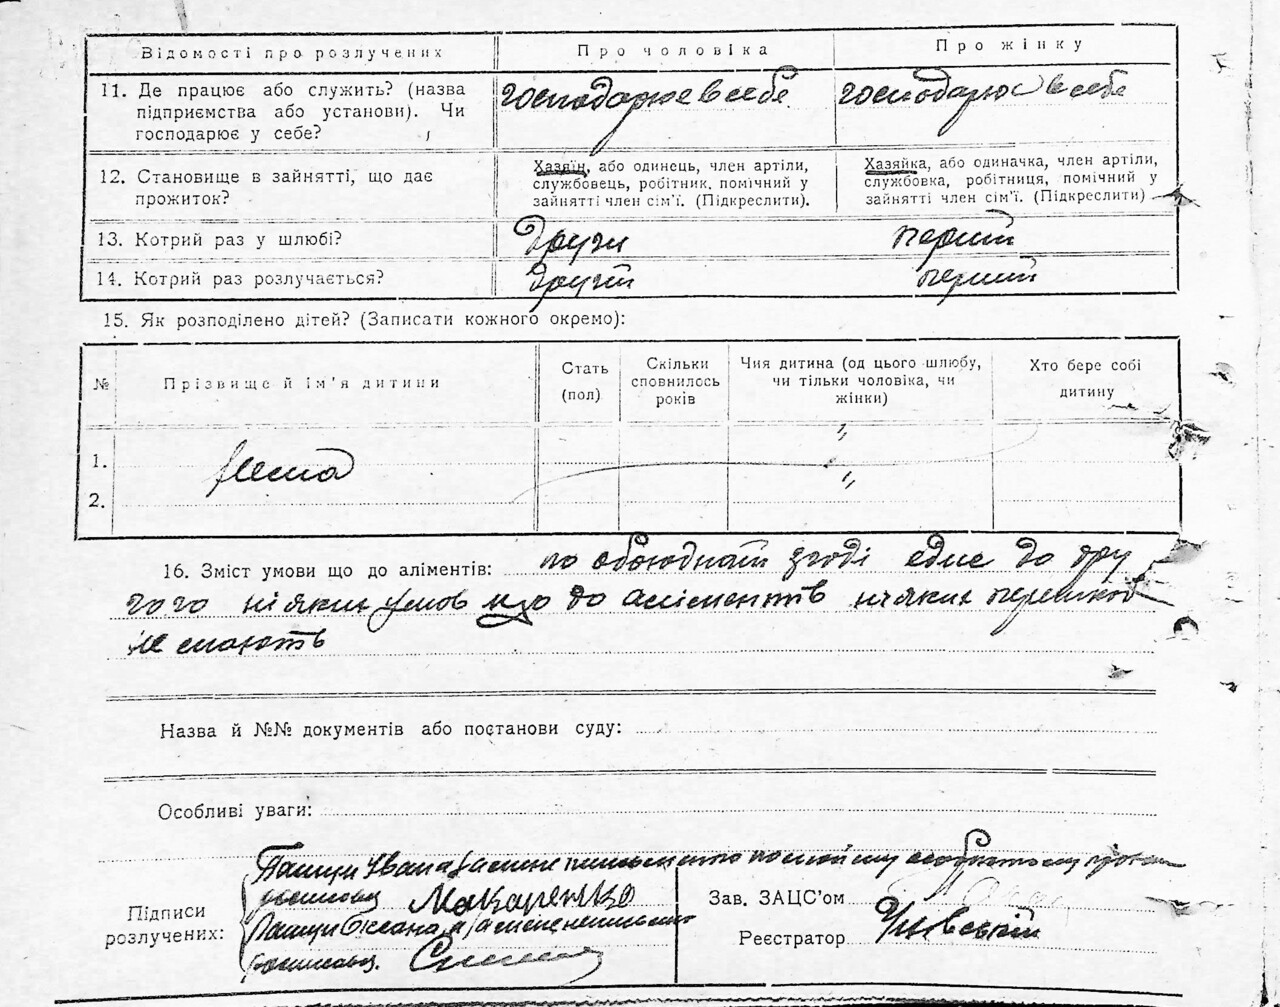 Відомості про розлучених Про чоловіка Про жінку
11. Де працює або служить? (назва підприємства або установи). Чи господарює у себе? господарює в себе господарює в себе
12. Становище в зайнятті, що дає прожиток?
Хазяїн, або одинець, член артіли, службовець, робітник, помічний у зайнятті член сім'ї. (Підкреслити).
Хазяйка, або одиначка, член артіли, службовка, робітниця, помічний у зайнятті член сім'ї. (Підкреслити)
13. Котрий раз у шлюбі? други перший
14. Котрий раз розлучається? другий перший
15. Як розподілено дітей? (Записати кожного окремо):
№ Прізвище й ім'я дитини Стать (пол) Скільки сповнилось років Чия дитина (од цього шлюбу, чи тільки чоловіка, чи жінки) Хто бере собі дитину
1. нема
2.
16. Зміст умови що до аліментів: по обоюдній згоді едне до дру
гого ніяких умов що до аліментів ніяких перешкод
не мають
Назва й №№ документів або постанови суду:
Особливі уваги:
Підписи розлучених:
Пащун Іван а за
Макаренко
Пащун Оксана а за
Зав. ЗАЦС'ом
Реєстратор